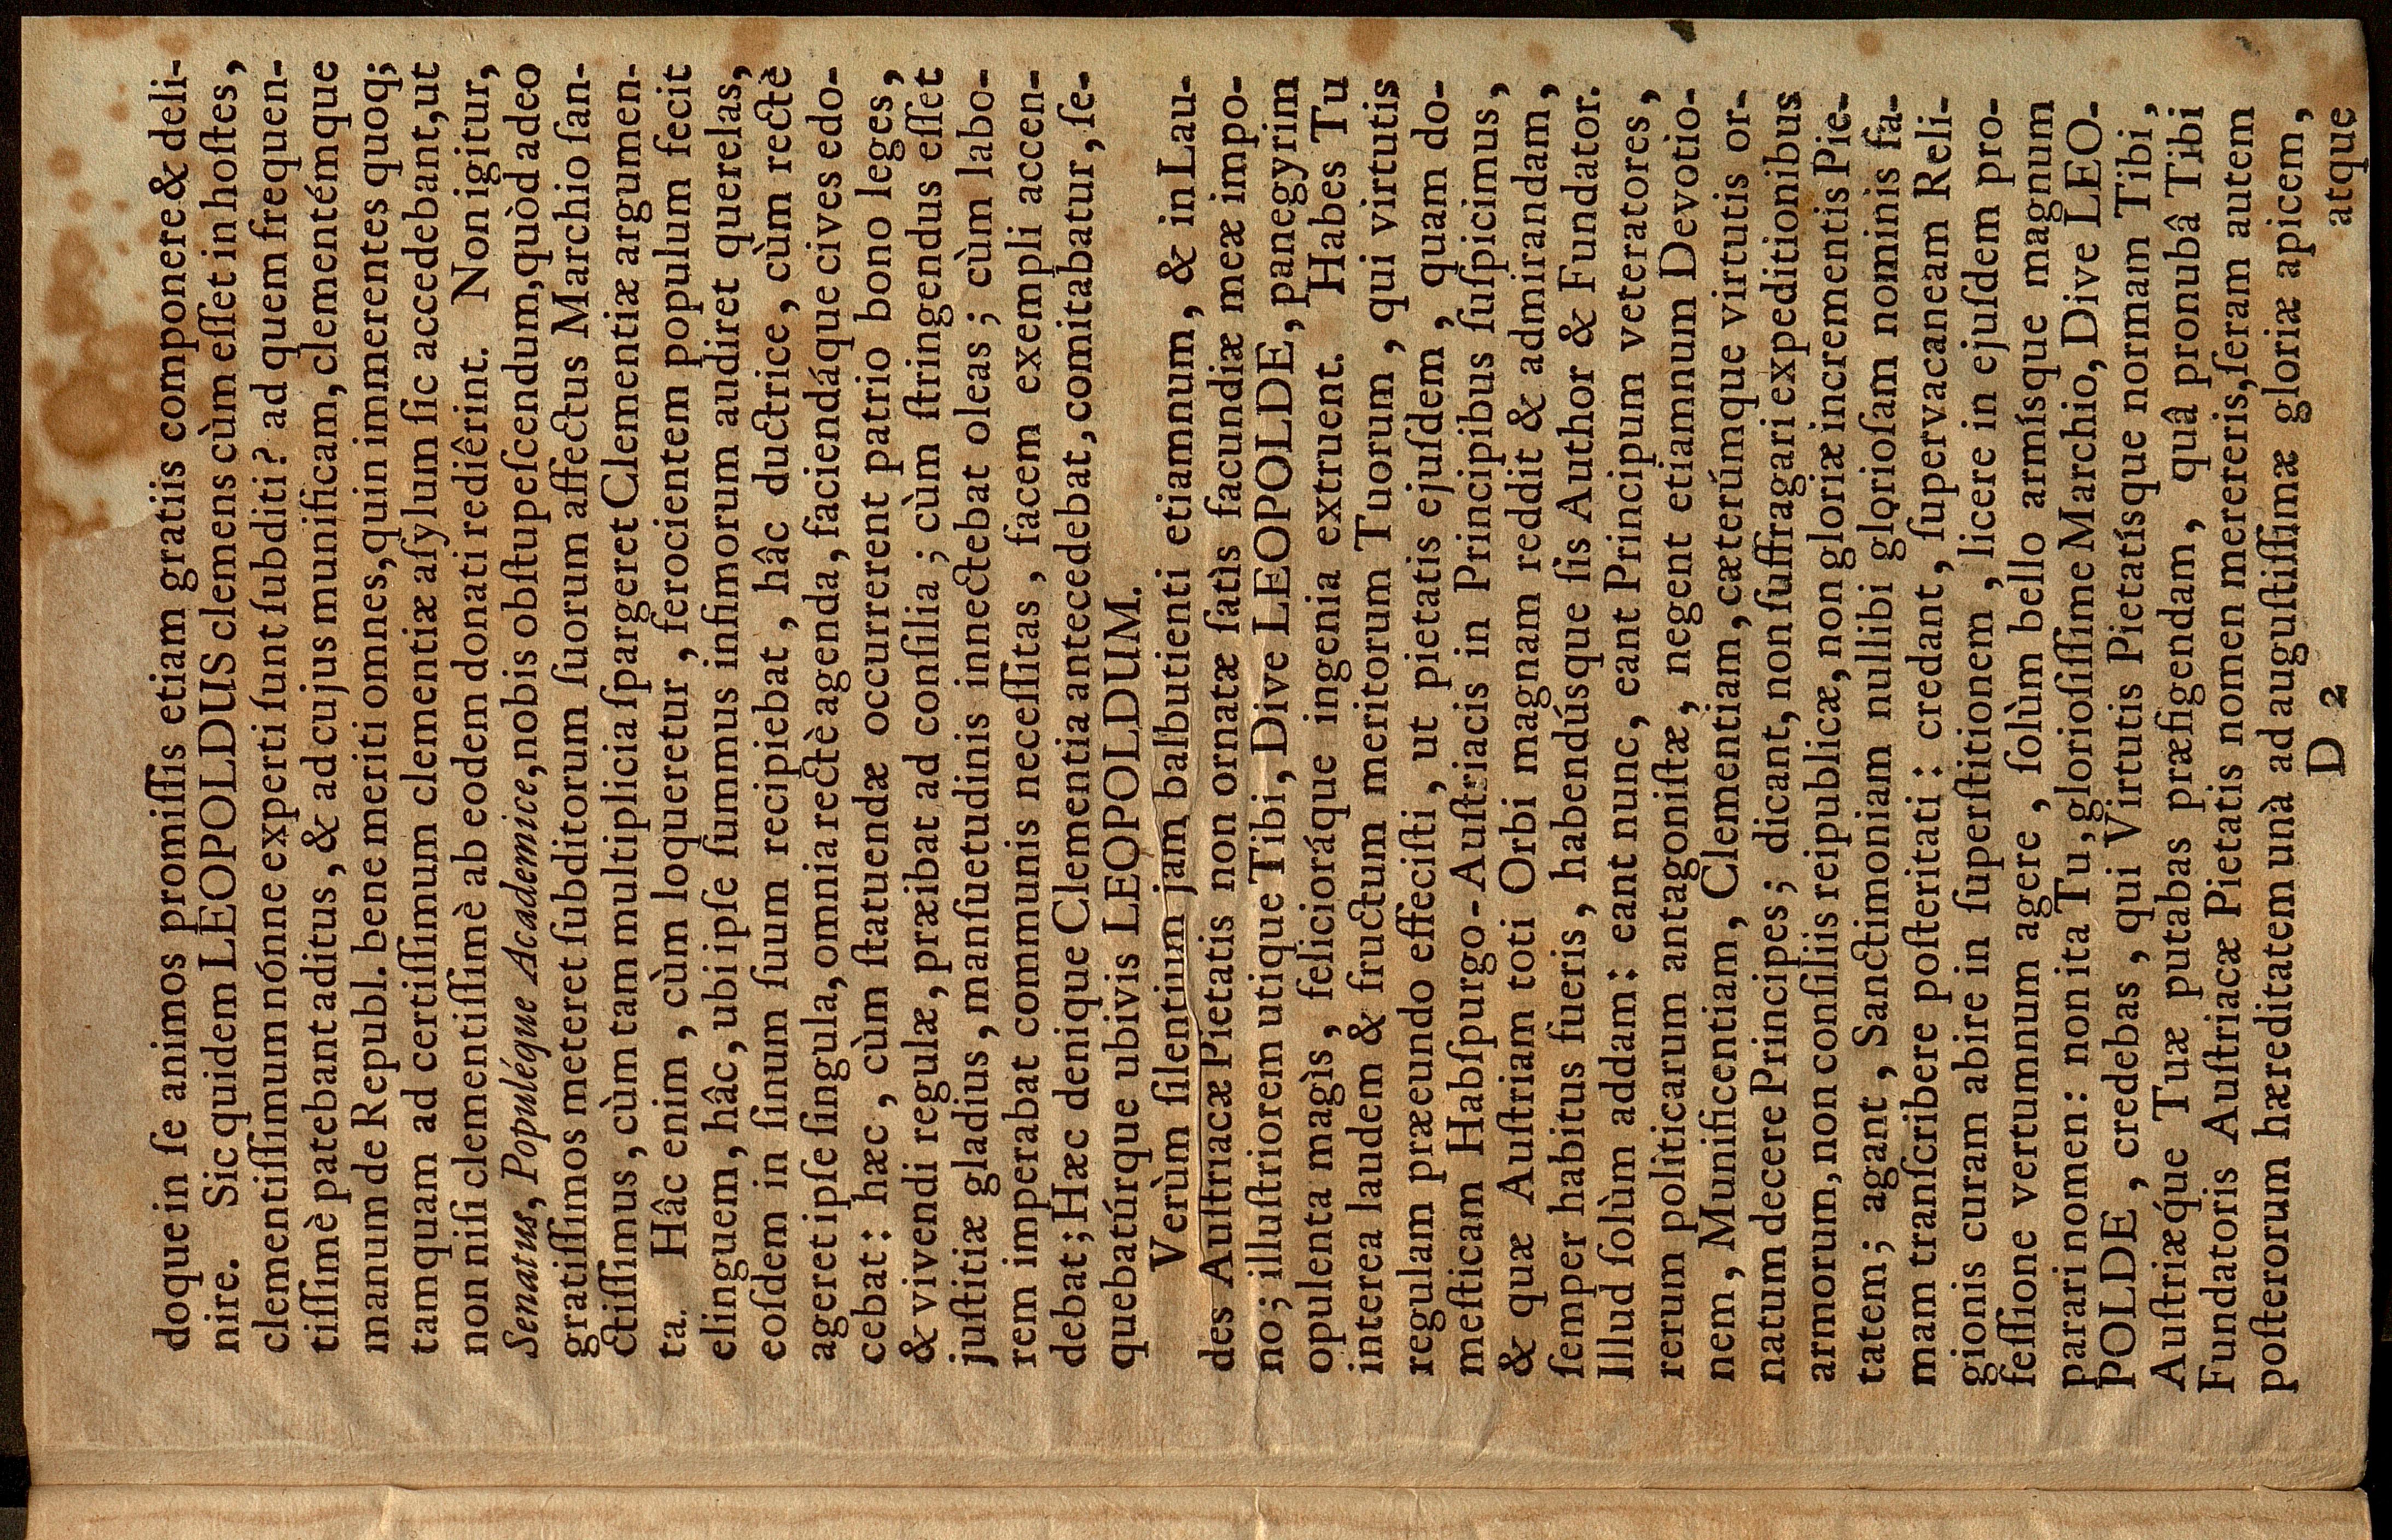 doque in ſe animos promiſſis etiam gratiis componere & deli-
nire. Sic quidem LEOPOLDUS clemens cùm eſſet in hoſtes,
clementiſſimum nónne experti ſunt ſubditi? ad quem frequen-
tiſſimè patebant aditus, & ad cujus munificam, clementémque
manum de Republ. bene meriti omnes, quin immerentes quoq;
tamquam ad certiſſimum clementiæ aſylum ſic accedebant, ut
non niſi clementiſſimè ab eodem donati rediêrint. Non igitur,
Senatus, Populéque Academice, nobis obſtupeſcendum, quòd adeo
gratiſſimos meteret ſubditorum ſuorum affectus Marchio ſan-
ctiſſimus, cùm tam multiplicia ſpargeret Clementiæ argumen-
ta. Hâc enim, cùm loqueretur, ferocientem populum fecit
elinguem, hâc, ubi ipſe ſummus infimorum audiret querelas,
eoſdem in ſinum ſuum recipiebat, hâc ductrice, cùm rectè
ageret ipſe ſingula, omnia rectè agenda, faciendáque cives edo-
cebat: hæc, cùm ſtatuendæ occurrerent patrio bono leges,
& vivendi regulæ, præibat ad conſilia; cùm ſtringendus eſſet
juſtitiæ gladius, manſuetudinis innectebat oleas; cùm labo-
rem imperabat communis neceſſitas, facem exempli accen-
debat; Hæc denique Clementia antecedebat, comitabatur, ſe-
quebatúrque ubivis LEOPOLDUM.
Verùm ſilentium jam balbutienti etiamnum, & in Lau-
des Auſtriacæ Pietatis non ornatæ ſatìs facundiæ meæ impo-
no; illuſtriorem utique Tibi, Dive LEOPOLDE, panegyrim
opulenta magìs, felicioráque ingenia extruent. Habes Tu
interea laudem & fructum meritorum Tuorum, qui virtutis
regulam præeundo effeciſti, ut pietatis ejuſdem, quam do-
meſticam Habſpurgo-Auſtriacis in Principibus ſuſpicimus,
& quæ Auſtriam toti Orbi magnam reddit & admirandam,
ſemper habitus fueris, habendúsque ſis Author & Fundator.
Illud ſolùm addam: eant nunc, eant Principum veteratores,
rerum politicarum antagoniſtæ, negent etiamnum Devotio-
nem, Munificentiam, Clementiam, cæterúmque virtutis or-
natum decere Principes; dicant, non ſuffragari expeditionibus
armorum, non conſiliis reipublicæ, non gloriæ incrementis Pie-
tatem; agant, Sanctimoniam nullibi glorioſam nominis fa-
mam tranſcribere poſteritati: credant, ſupervacaneam Reli-
gionis curam abire in ſuperſtitionem, licere in ejuſdem pro-
feſſione vertumnum agere, ſolùm bello armísque magnum
parari nomen: non ita Tu, glorioſiſſime Marchio, Dive LEO-
POLDE, credebas, qui Virtutis Pietatísque normam Tibi,
Auſtriæq́ue Tuæ putabas præfigendam, quâ pronubâ Tibi
Fundatoris Auſtriacæ Pietatis nomen merereris, ſeram autem
poſterorum hæreditatem unà ad auguſtiſſimæ gloriæ apicem,
D 2
atque